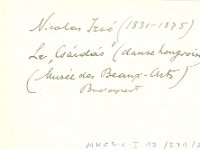 Nicolas Izsó (1831-1875)
Le „Csárdás" (danse hongroise
(Musée des Beaux-Arts)
Budapest
MKCS-C I 13 /271